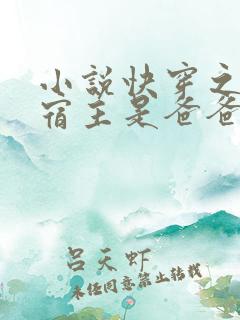 小说快穿之
宿主是爸爸
吕天虾
未经同意禁止转载